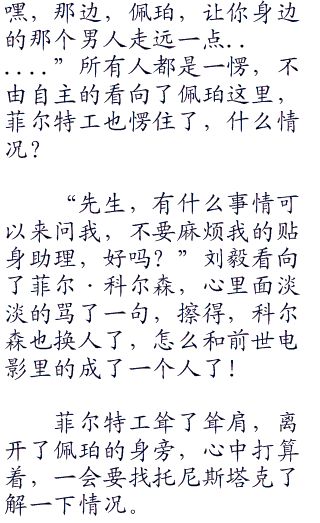 嘿，那边，佩珀，让你身边
的那个男人走远一点..
....”所有人都是一愣，不
由自主的看向了佩珀这里，
菲尔特工也愣住了，什么情
况？
“先生，有什么事情可
以来问我，不要麻烦我的贴
身助理，好吗？”刘毅看向
了菲尔·科尔森，心里面淡
淡的骂了一句，擦得，科尔
森也换人了，怎么和前世电
影里的成了一个人了！
菲尔特工耸了耸肩，离
开了佩珀的身旁，心中打算
着，一会要找托尼斯塔克了
解一下情况。